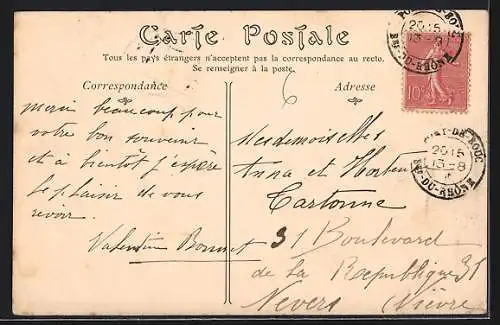 Carte Postale
Tous les pays étrangers n'acceptent pas la correspondance au recto.
Se renseigner à la poste.
Correspondance
Adresse
6
merci beaucoup pour
votre bon souvenir
et à bientôt j'espère
le plaisir de vous
revoir.
Valentine Bonnet
Mesdemoiselles
Anna et Hortense
Cartonne
31 Boulevard
de la Republique 31
Nevers (Nièvre)
10
20 15
13-8
BES-DU-RHÔNE
PORT-DE-BOUC
20 15
13-8
BES-DU-RHÔNE